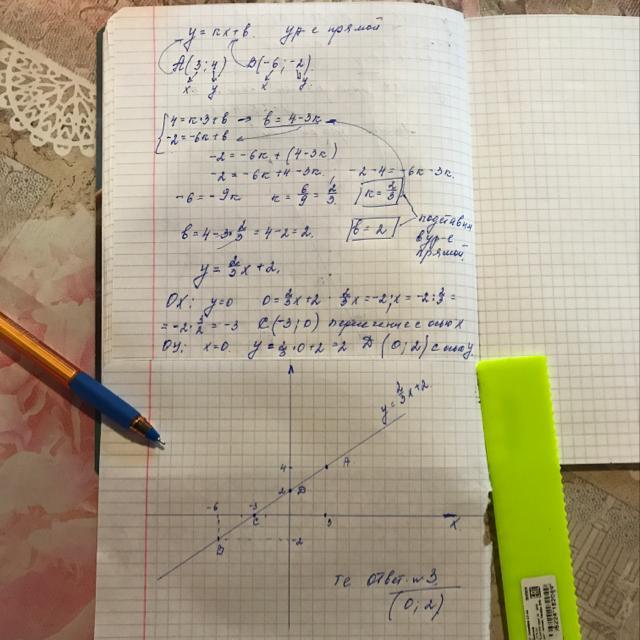 y = кx + в. ур-е прямой
A(3; 4) B(-6; -2)
x y x y
4 = к·3 + в → в = 4 - 3к
-2 = -6к + в
-2 = -6к + (4 - 3к)
-2 = -6к + 4 - 3к. -2 - 4 = -6к - 3к.
-6 = -9к к = 6/9 = 2/3 к = 2/3
в = 4 - 3·2/3 = 4 - 2 = 2. в = 2 подставим
в ур-е
прямой
y = 2/3x + 2.
OX: y = 0 0 = 2/3x + 2 2/3x = -2; x = -2 : 2/3 =
= -2·3/2 = -3 C(-3; 0) пересечение с осью x
OY: x = 0. y = 2/3·0 + 2 = 2 D (0; 2) с осью y
y = 2/3x + 2
4 A
2 D
-6 -3
C 3 X
B -2
те ответ №3
(0; 2)